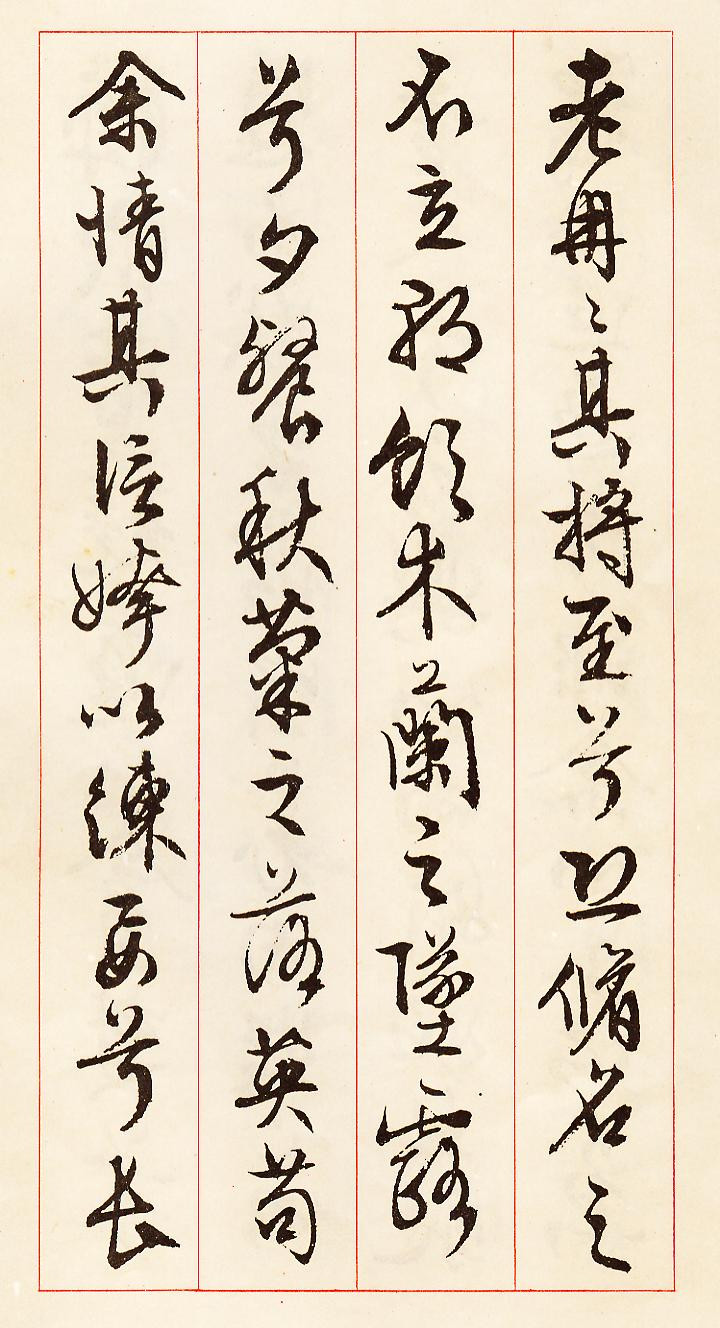 老冉〻其將至兮恐脩名之
不立朝飲木蘭之墜露
兮夕餐秋菊之落英苟
余情其信姱以練要兮長